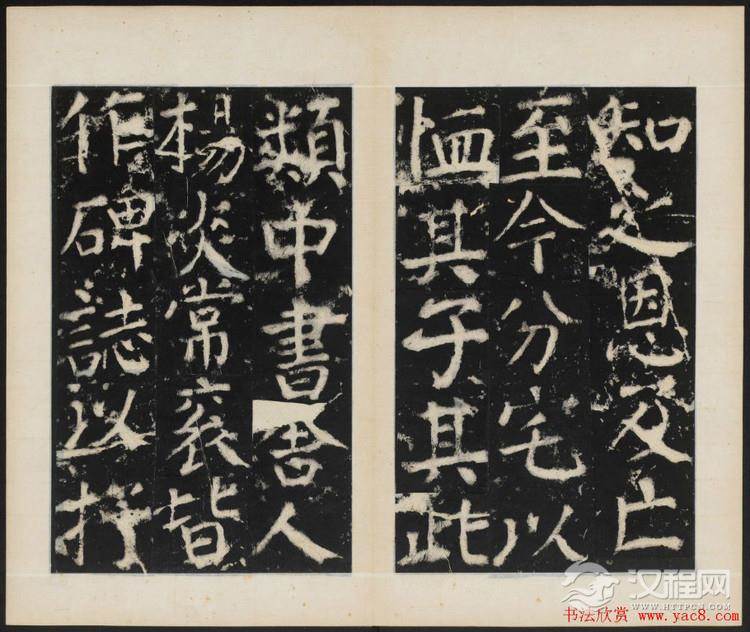 知之恩及亡
至今分宅以
恤其子其此
類中書舍人
楊炎常袞皆
作碑誌以抒
汉程网
WWW.HTTPCN.COM
书法欣赏 www.yac8.com